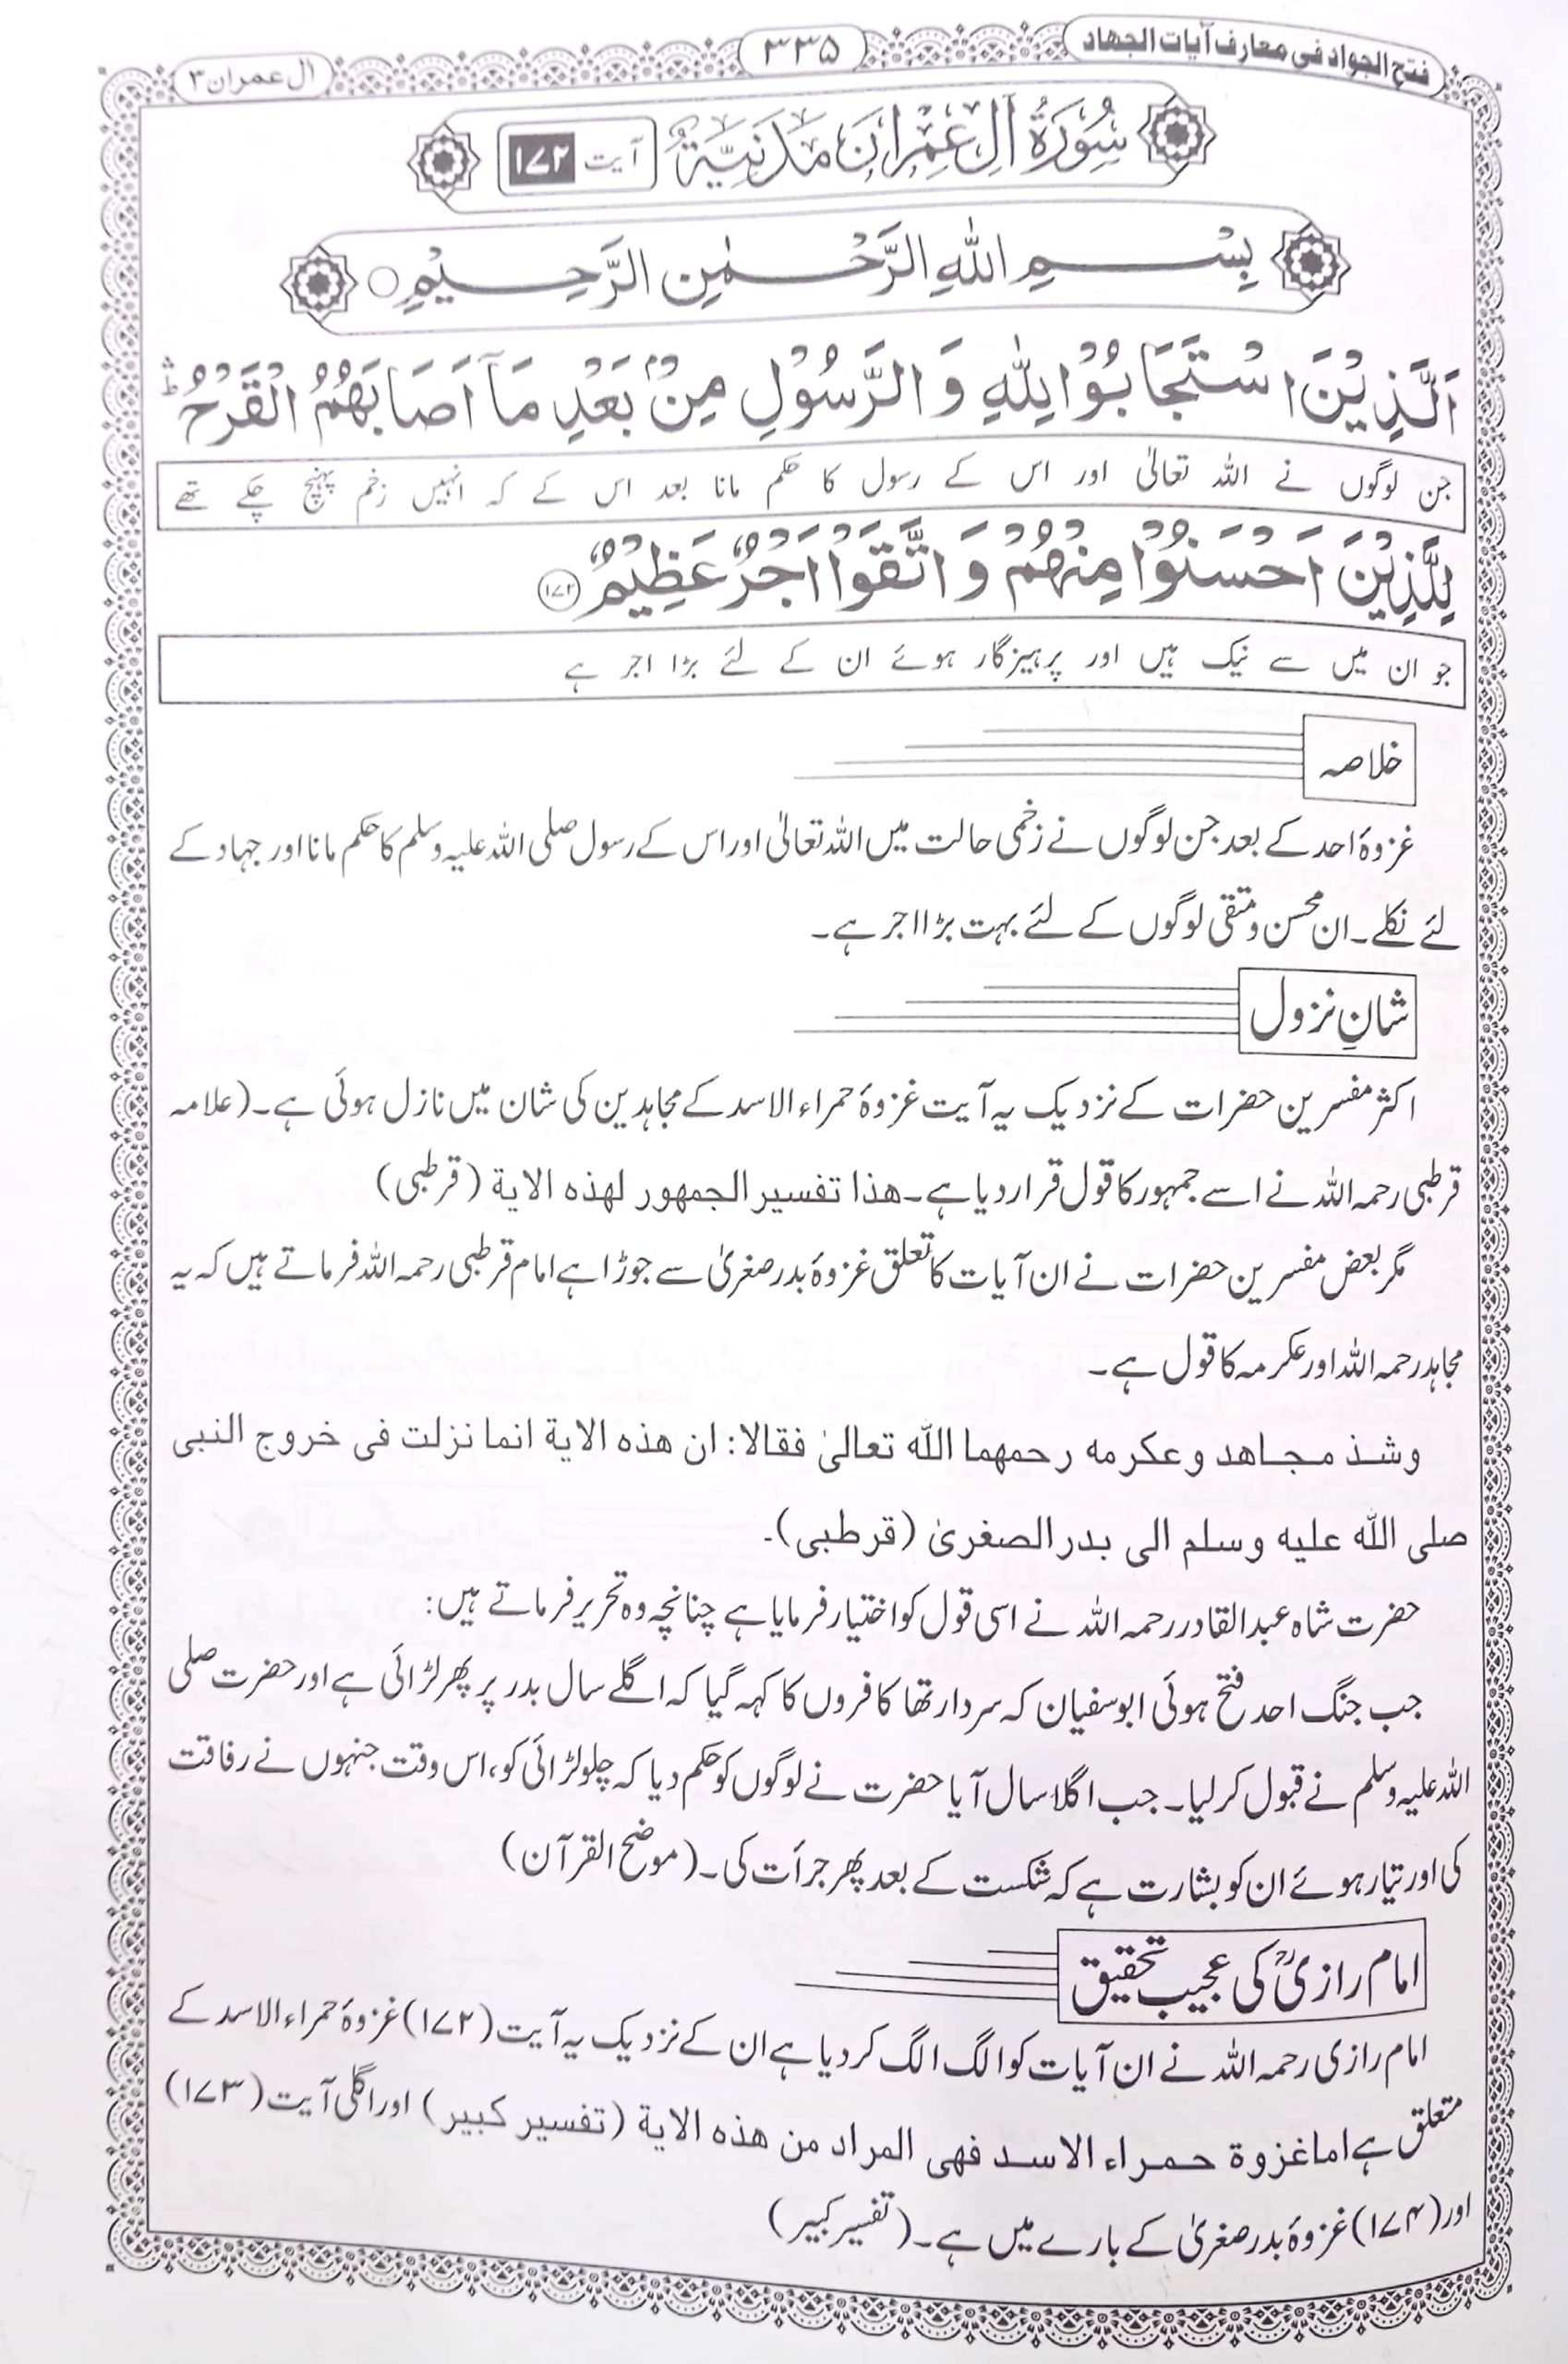 فتح الجواد فی معارف آیات الجهاد
۳۳۵
ال عمران ۳
سُوْرَةُ اٰلِ عِمْرَانَ مَدَنِيَّةٌ آیت ۱۷۲
بِسْمِ اللهِ الرَّحْمٰنِ الرَّحِيْمِ
اَلَّذِيْنَ اسْتَجَابُوْا لِلّٰهِ وَ الرَّسُوْلِ مِنْۢ بَعْدِ مَاۤ اَصَابَهُمُ الْقَرْحُ ؕۛ
جن لوگوں نے اللہ تعالیٰ اور اس کے رسول کا حکم مانا بعد اس کے کہ انہیں زخم پہنچ چکے تھے
لِلَّذِيْنَ اَحْسَنُوْا مِنْهُمْ وَ اتَّقَوْا اَجْرٌ عَظِيْمٌ ۱۷۲
جو ان میں سے نیک ہیں اور پرہیزگار ہوئے ان کے لئے بڑا اجر ہے
خلاصہ
غزوۂ احد کے بعد جن لوگوں نے زخمی حالت میں اللہ تعالیٰ اور اس کے رسول صلی اللہ علیہ وسلم کا حکم مانا اور جہاد کے
لئے نکلے۔ ان محسن و متقی لوگوں کے لئے بہت بڑا اجر ہے۔
شانِ نزول
اکثر مفسرین حضرات کے نزدیک یہ آیت غزوۂ حمراء الاسد کے مجاہدین کی شان میں نازل ہوئی ہے۔ (علامہ
قرطبی رحمہ اللہ نے اسے جمہور کا قول قرار دیا ہے۔ هذا تفسير الجمهور لهذه الاية (قرطبی)
مگر بعض مفسرین حضرات نے ان آیات کا تعلق غزوۂ بدر صغریٰ سے جوڑا ہے امام قرطبی رحمہ اللہ فرماتے ہیں کہ یہ
مجاہد رحمہ اللہ اور عکرمہ کا قول ہے۔
وشذ مجاهد وعكرمه رحمهما الله تعالىٰ فقالا: ان هذه الاية انما نزلت فى خروج النبى
صلى الله عليه وسلم الى بدر الصغرىٰ (قرطبى)۔
حضرت شاہ عبدالقادر رحمہ اللہ نے اسی قول کو اختیار فرمایا ہے چنانچہ وہ تحریر فرماتے ہیں:
جب جنگ احد فتح ہوئی ابوسفیان کہ سردار تھا کافروں کا کہہ گیا کہ اگلے سال بدر پر پھر لڑائی ہے اور حضرت صلی
اللہ علیہ وسلم نے قبول کر لیا۔ جب اگلا سال آیا حضرت نے لوگوں کو حکم دیا کہ چلو لڑائی کو، اس وقت جنہوں نے رفاقت
کی اور تیار ہوئے ان کو بشارت ہے کہ شکست کے بعد پھر جرأت کی۔ (موضح القرآن)
امام رازیؒ کی عجیب تحقیق
امام رازی رحمہ اللہ نے ان آیات کو الگ الگ کر دیا ہے ان کے نزدیک یہ آیت (۱۷۲) غزوۂ حمراء الاسد کے
متعلق ہے اما غزوة حمراء الاسد فهى المراد من هذه الاية (تفسير كبير) اور اگلی آیت (۱۷۳)
اور (۱۷۴) غزوۂ بدر صغریٰ کے بارے میں ہے۔ (تفسیر کبیر)